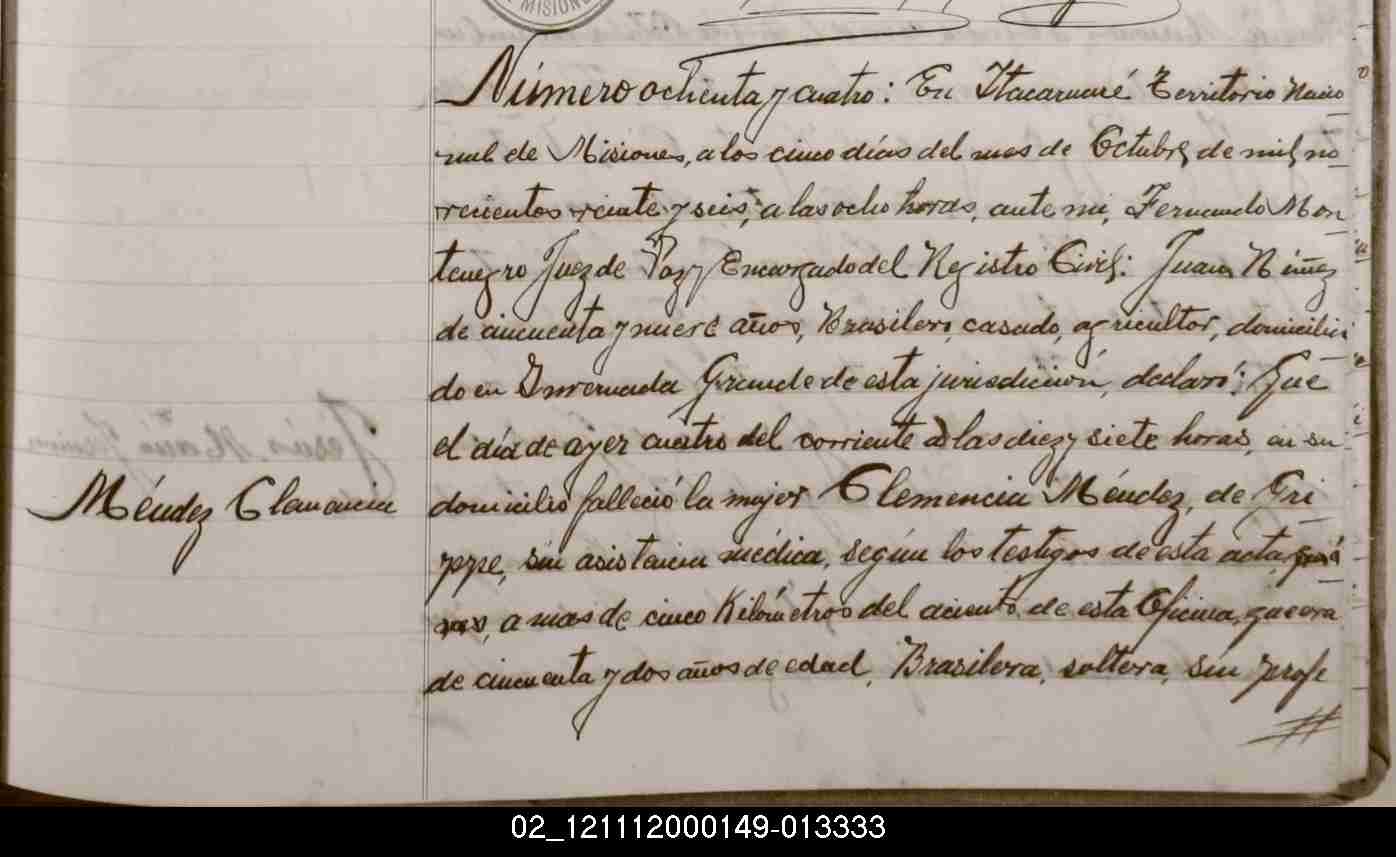 MISIONE
Número ochenta y cuatro: En Itacaruaré Territorio Nacio
nal de Misiones, a los cinco días del mes de Octubre, de mil no
vecientos veinte y seis, a las ocho horas, ante mi, Fernando Mon
tenegro Juez de Paz y Encargado del Registro Civil: Juan Núñez
de cincuenta y nueve años, Brasilero, casado, agricultor, domicilia
do en Invernada Grande de esta jurisdicción, declaró: Que
el día de ayer cuatro del corriente a las diez y siete horas, en su
Méndez Clemencia
domicilio falleció la mujer Clemencia Méndez, de Gri
ppe, sin asistencia médica, según los testigos de esta acta,
a mas de cinco Kilómetros del aciento de esta Oficina, que era
de cincuenta y dos años de edad, Brasilera, soltera, sin profe
02_121112000149-013333